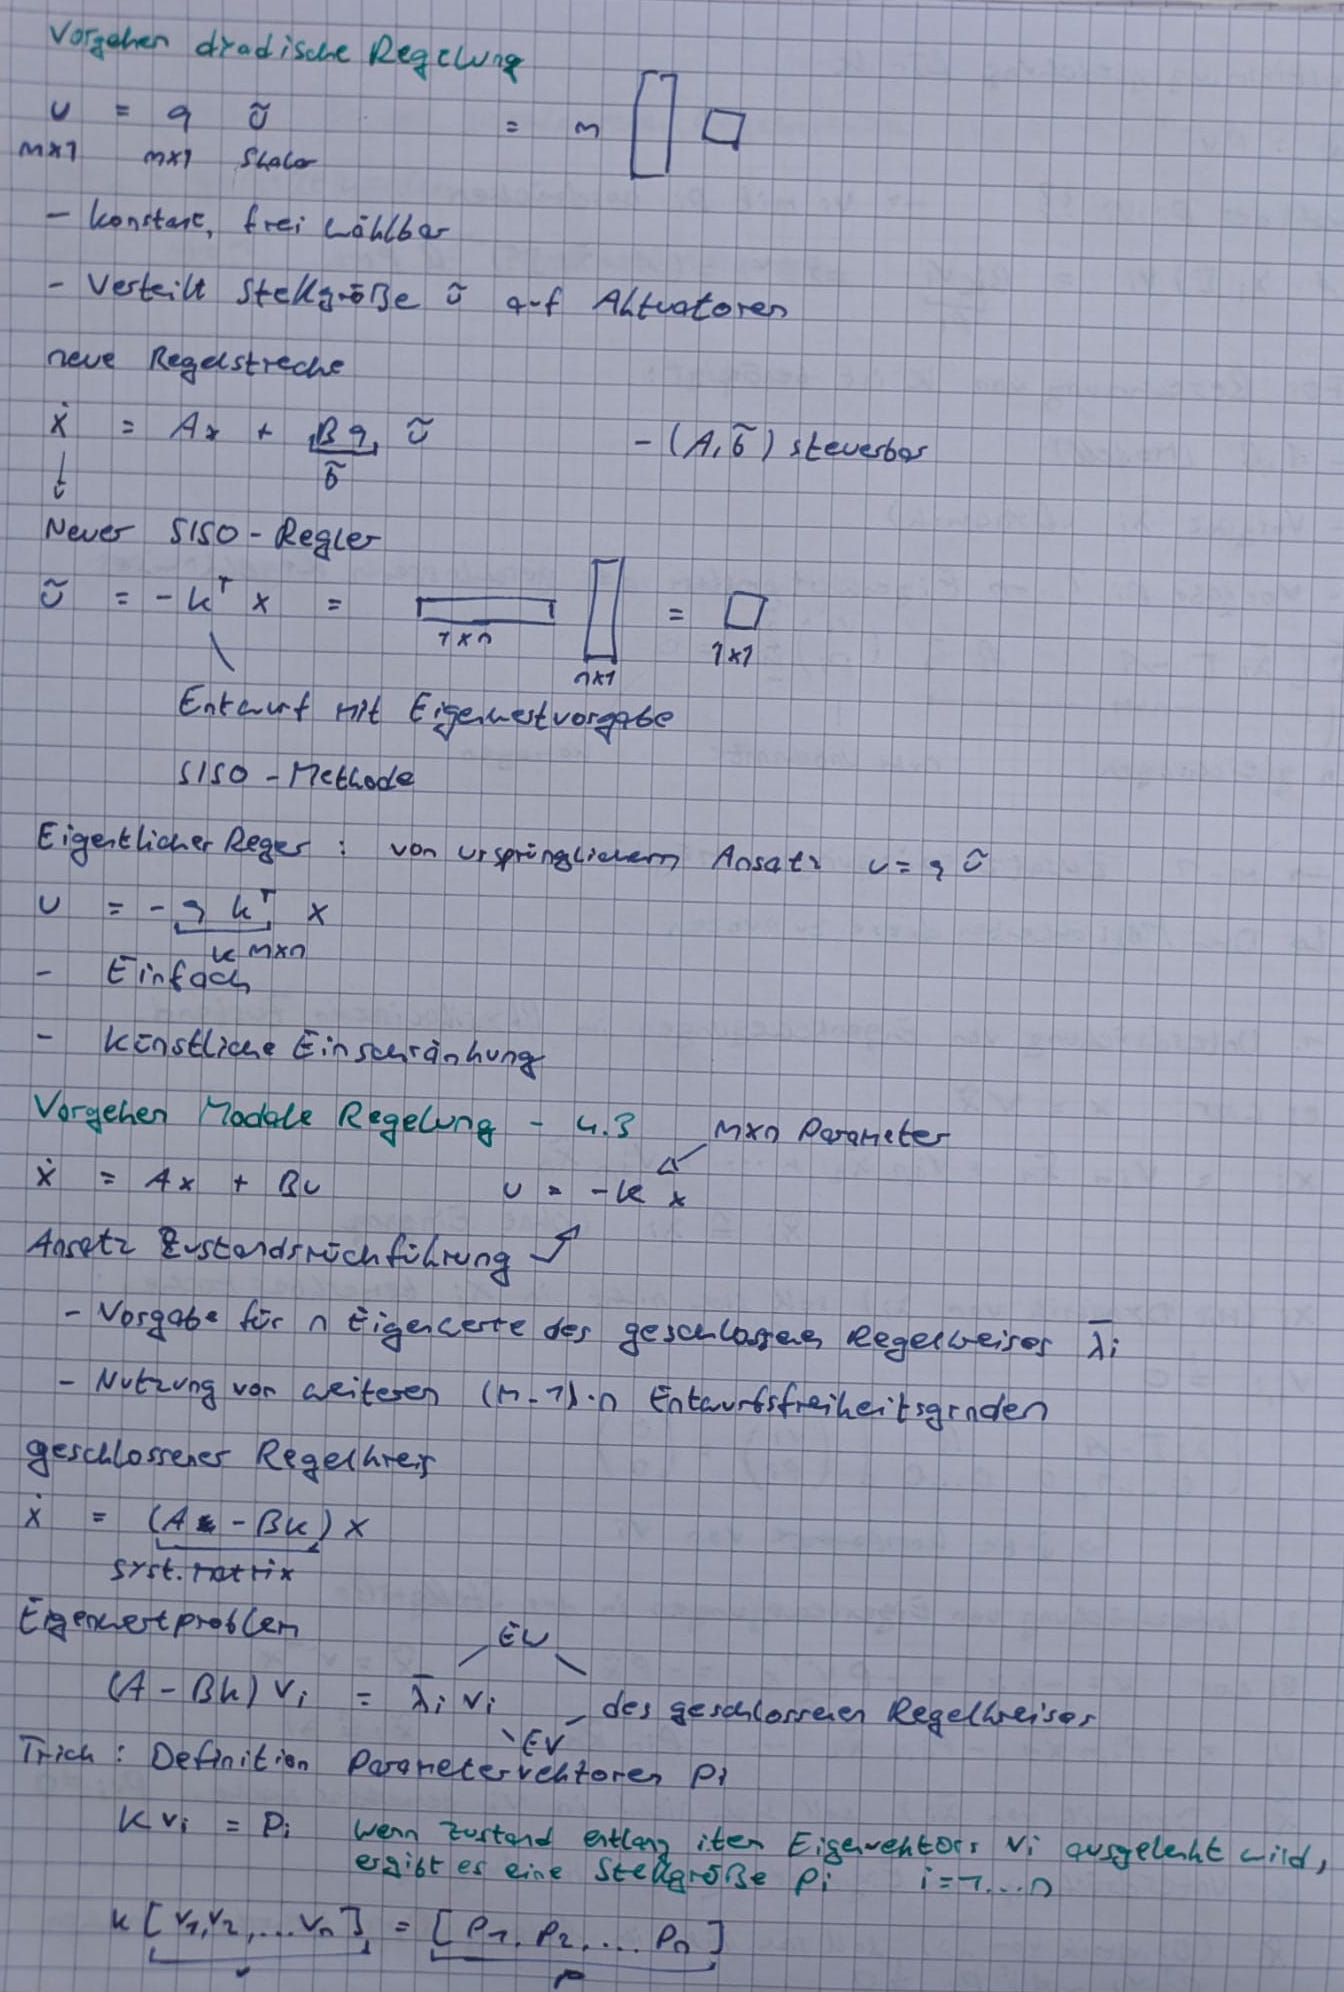 Vorgehen dyadische Regelung
u = q ũ = m
m×1 m×1 Skalar
- konstant, frei wählbar
- Verteilt Stellgröße ũ auf Aktuatoren
neue Regelstrecke
ẋ = Ax + Bq ũ - (A, b̃) steuerbar
b̃
Neuer SISO-Regler
ũ = -kᵀ x = =
1×n n×1 1×1
Entwurf mit Eigenwertvorgabe
SISO-Methode
Eigentlicher Reger : von ursprünglichem Ansatz u = q ũ
u = - q kᵀ x
K m×n
- Einfach
- Künstliche Einschränkung
Vorgehen Modale Regelung - 4.3 m×n Parameter
ẋ = Ax + Bu u = -K x
Ansatz Zustandsrückführung
- Vorgabe für n Eigenwerte des geschlossenen Regelkreises λ̄i
- Nutzung von weiteren (m-1)·n Entwurfsfreiheitsgraden
geschlossener Regelkreis
ẋ = (A - BK) x
Syst.matrix
Eigenwertproblem EW
(A - BK) vi = λ̄i vi des geschlossenen Regelkreises
EV
Trick: Definition Parametervektoren pi
K vi = pi wenn Zustand entlang iten Eigenvektors vi ausgelenkt wird,
ergibt es eine Stellgröße pi i=1...n
K [v1, v2, ... vn] = [p1, p2, ... pn]
V P